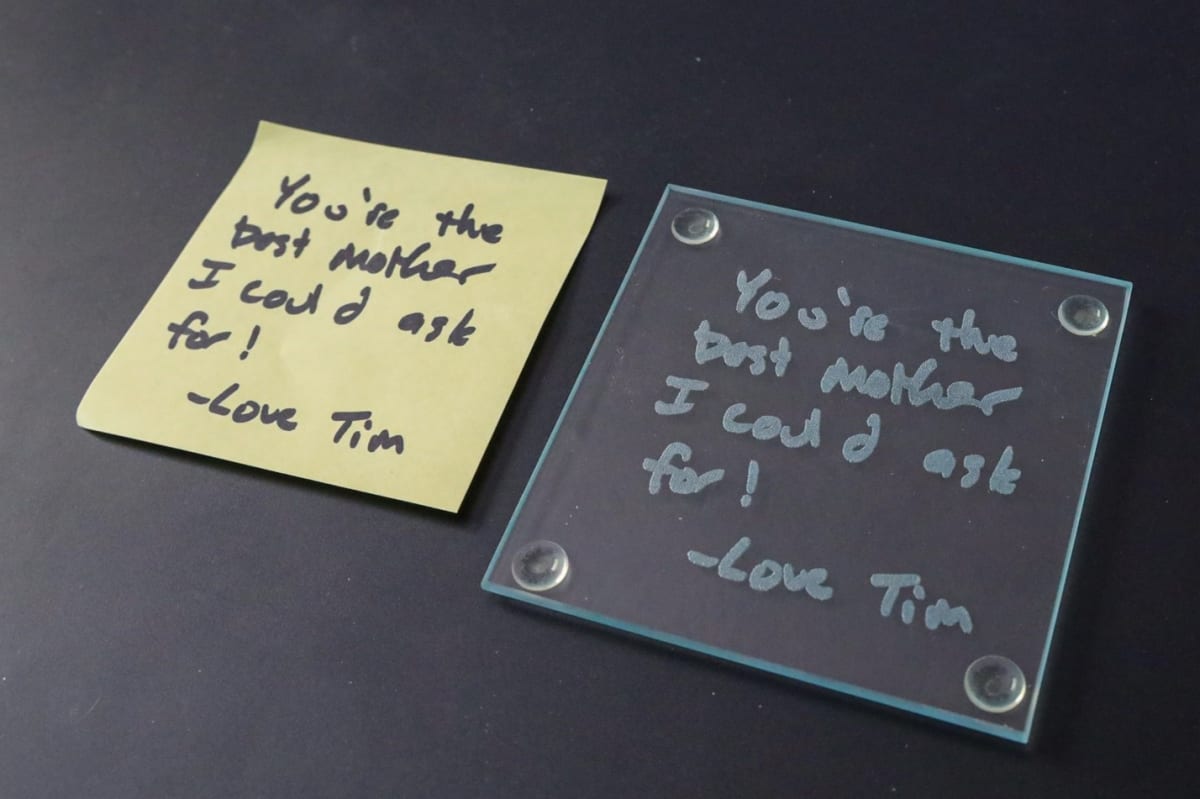 You're the
best mother
I could ask
for!
-Love Tim
You're the
best mother
I could ask
for!
-Love Tim